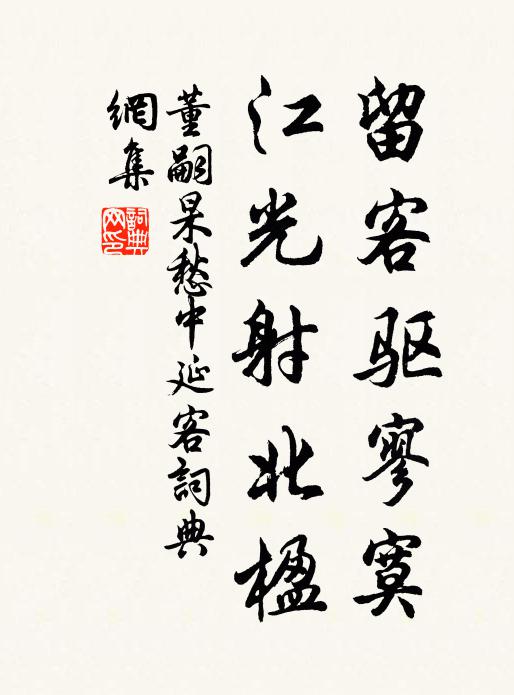 留客驱寥寞
江光射北楹
董嗣杲愁中延客詞典
網集
詞典
网印